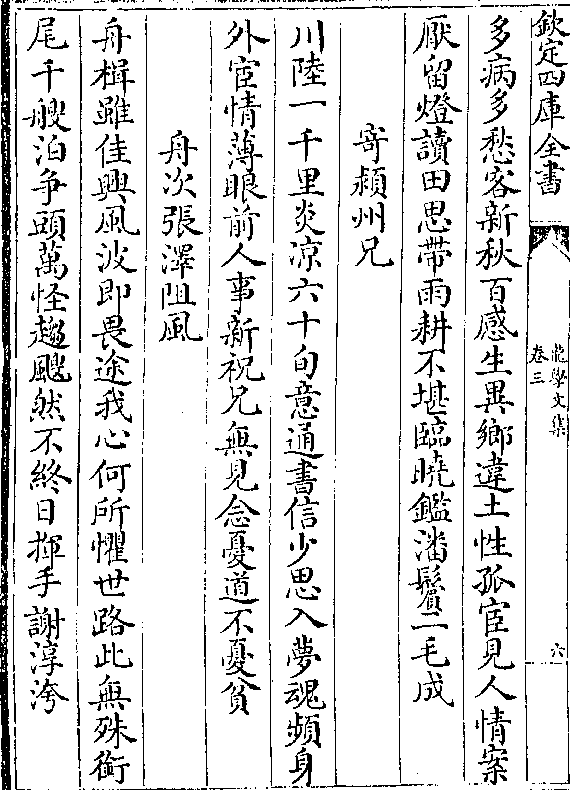 欽定四庫全書
龍學文集
卷三
六
多病多愁客新秋百感生異鄉違土性孤宦見人情案
厭留燈讀田思帶雨耕不堪臨曉鑑潘鬢二毛成
寄潁州兄
川陸一千里炎凉六十旬意通書信少思入夢魂頻身
外宦情薄眼前人事新祝兄無見念憂道不憂貧
舟次張澤阻風
舟楫雖佳興風波即畏途我心何所懼世路此無殊銜
尾千艘泊争頭萬怪趨飈然不終日揮手謝淳洿